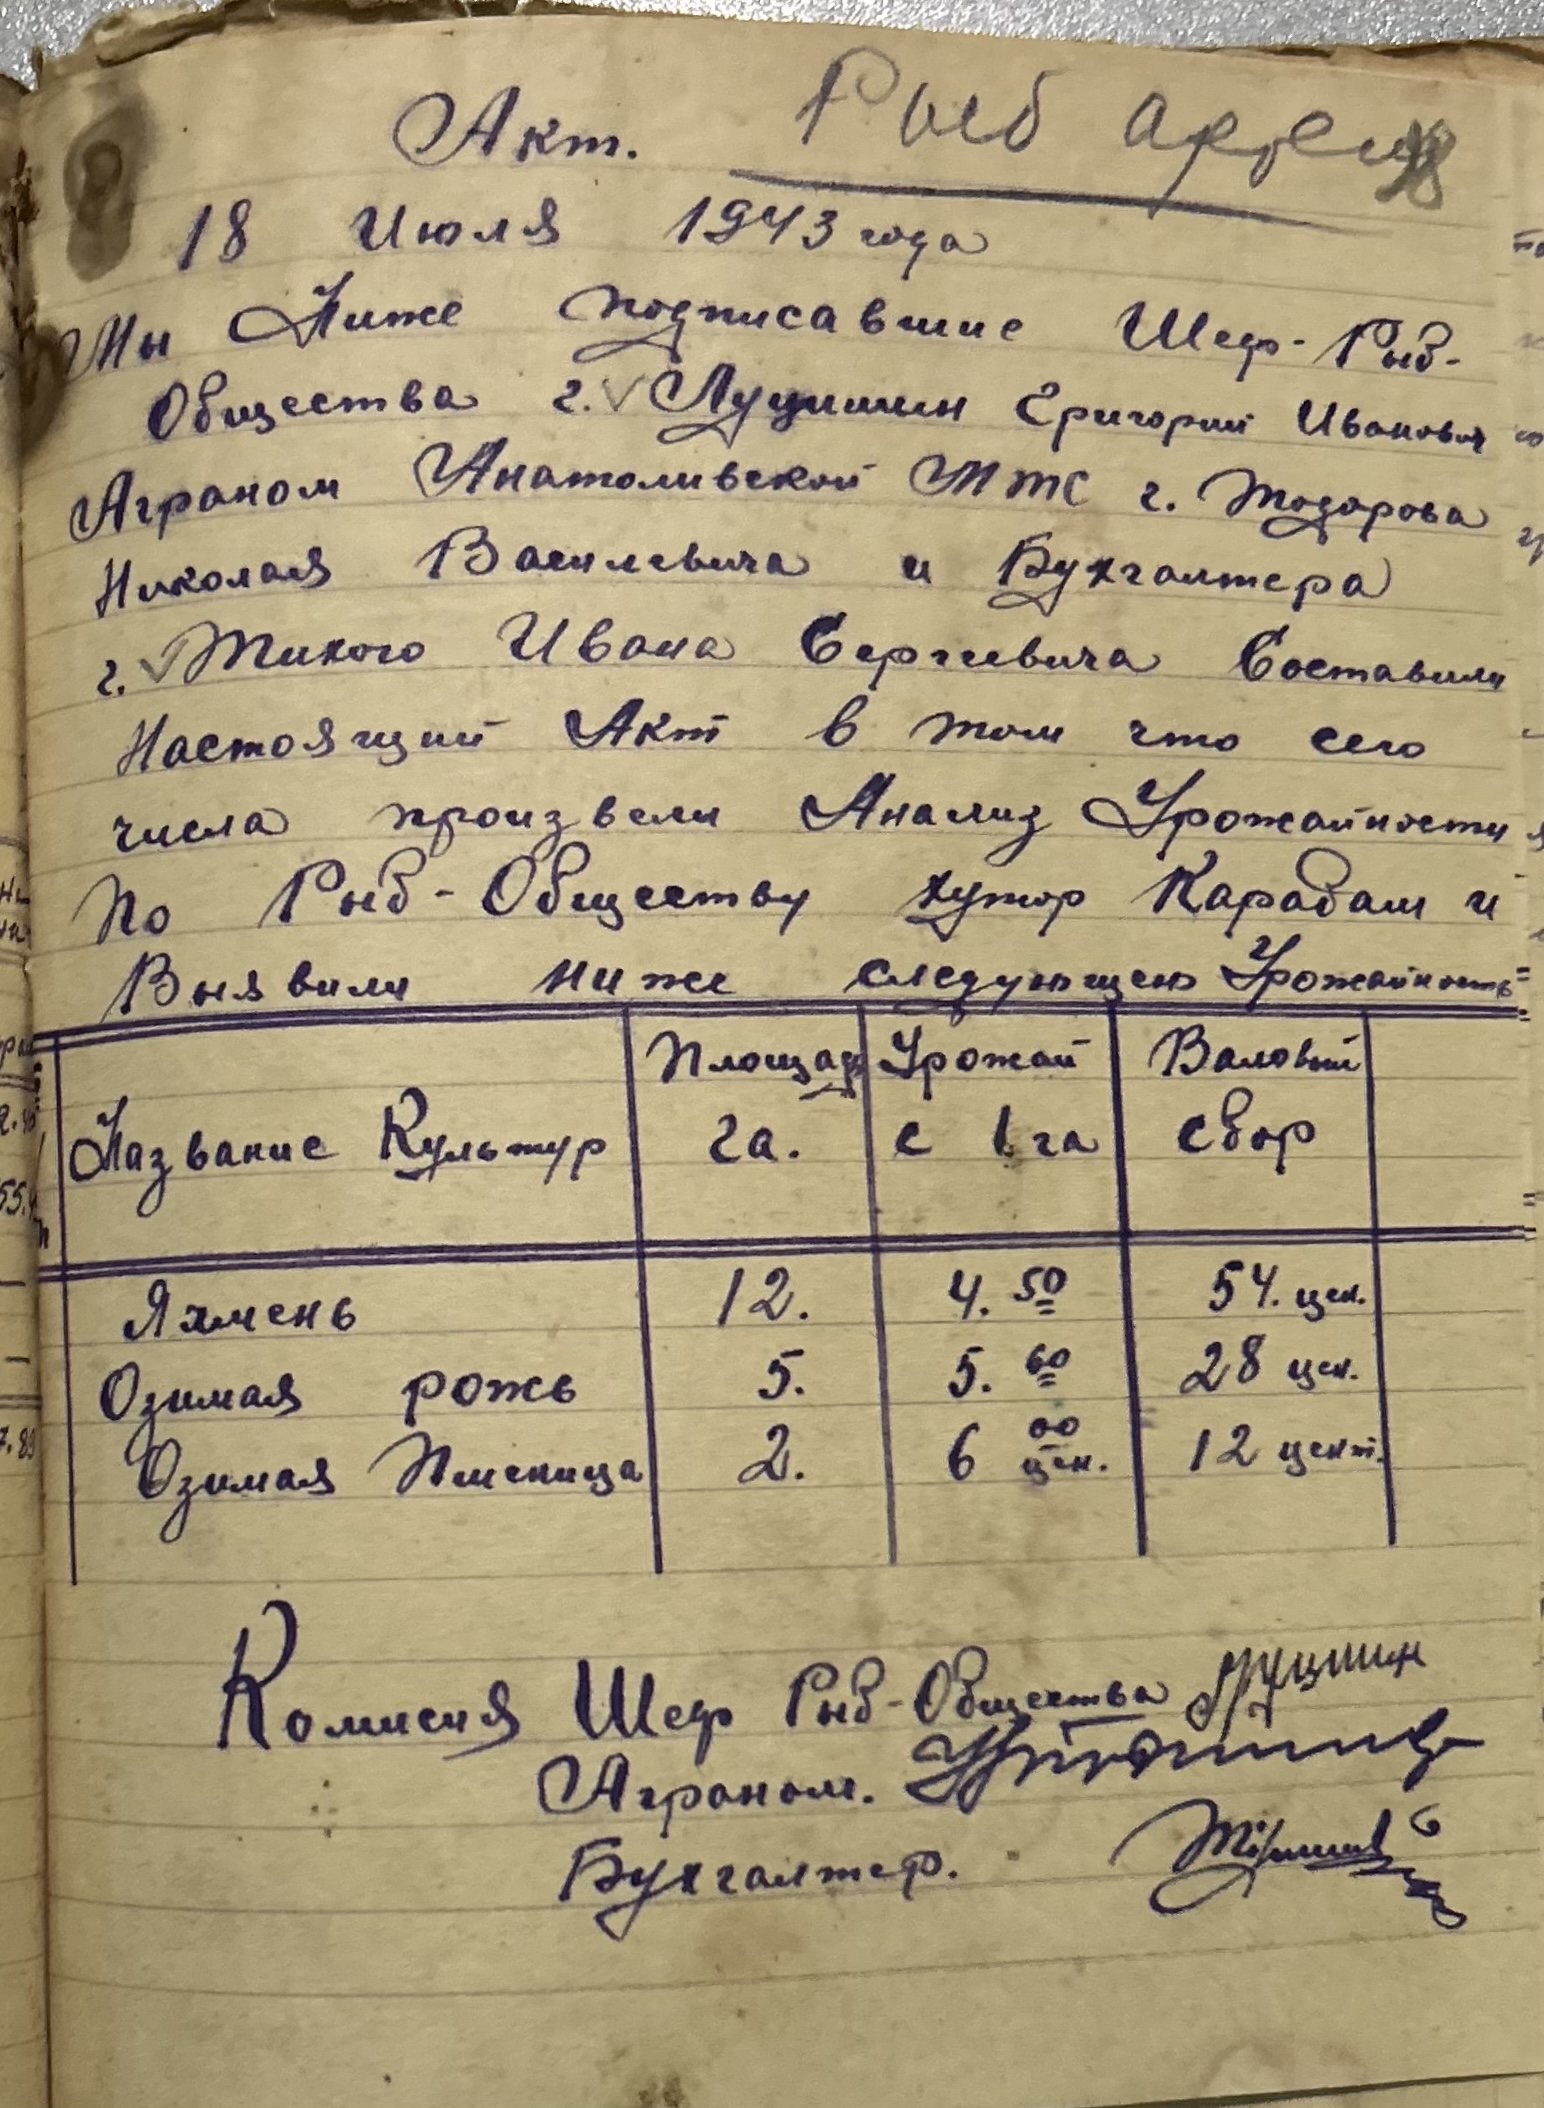 Акт. Рыб артель
18 Июля 1943 года
Мы Ниже подписавшие Шеф-Рыб-
Общества г. Луцишин Григорий Иванович
Аграном Анатоливской МТС г. Тодорова
Николая Василевича и Бухгалтера
г. Тихого Ивана Сергиевича Составили
Настоящий Акт в том что сего
числа произвели Анализ Урожайности
По Рыб-Обществу хутор Карабаш и
Выявили ниже следующею Урожайность
Название Культур Площадь га. Урожай с 1 га Валовый сбор
Яхмень 12. 4.50 54. цен.
Озимая рожь 5. 5.60 28 цен.
Озимая Пшеница 2. 6 00 цен. 12 цент.
Комисия Шеф Рыб-Общества
Аграном.
Бухгалтер.